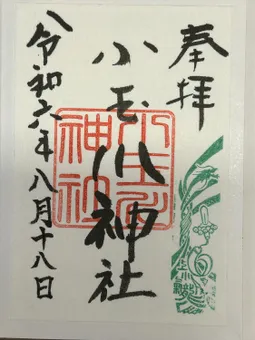 奉拝
小玉川神社
令和六年八月十八日
小玉川
神社